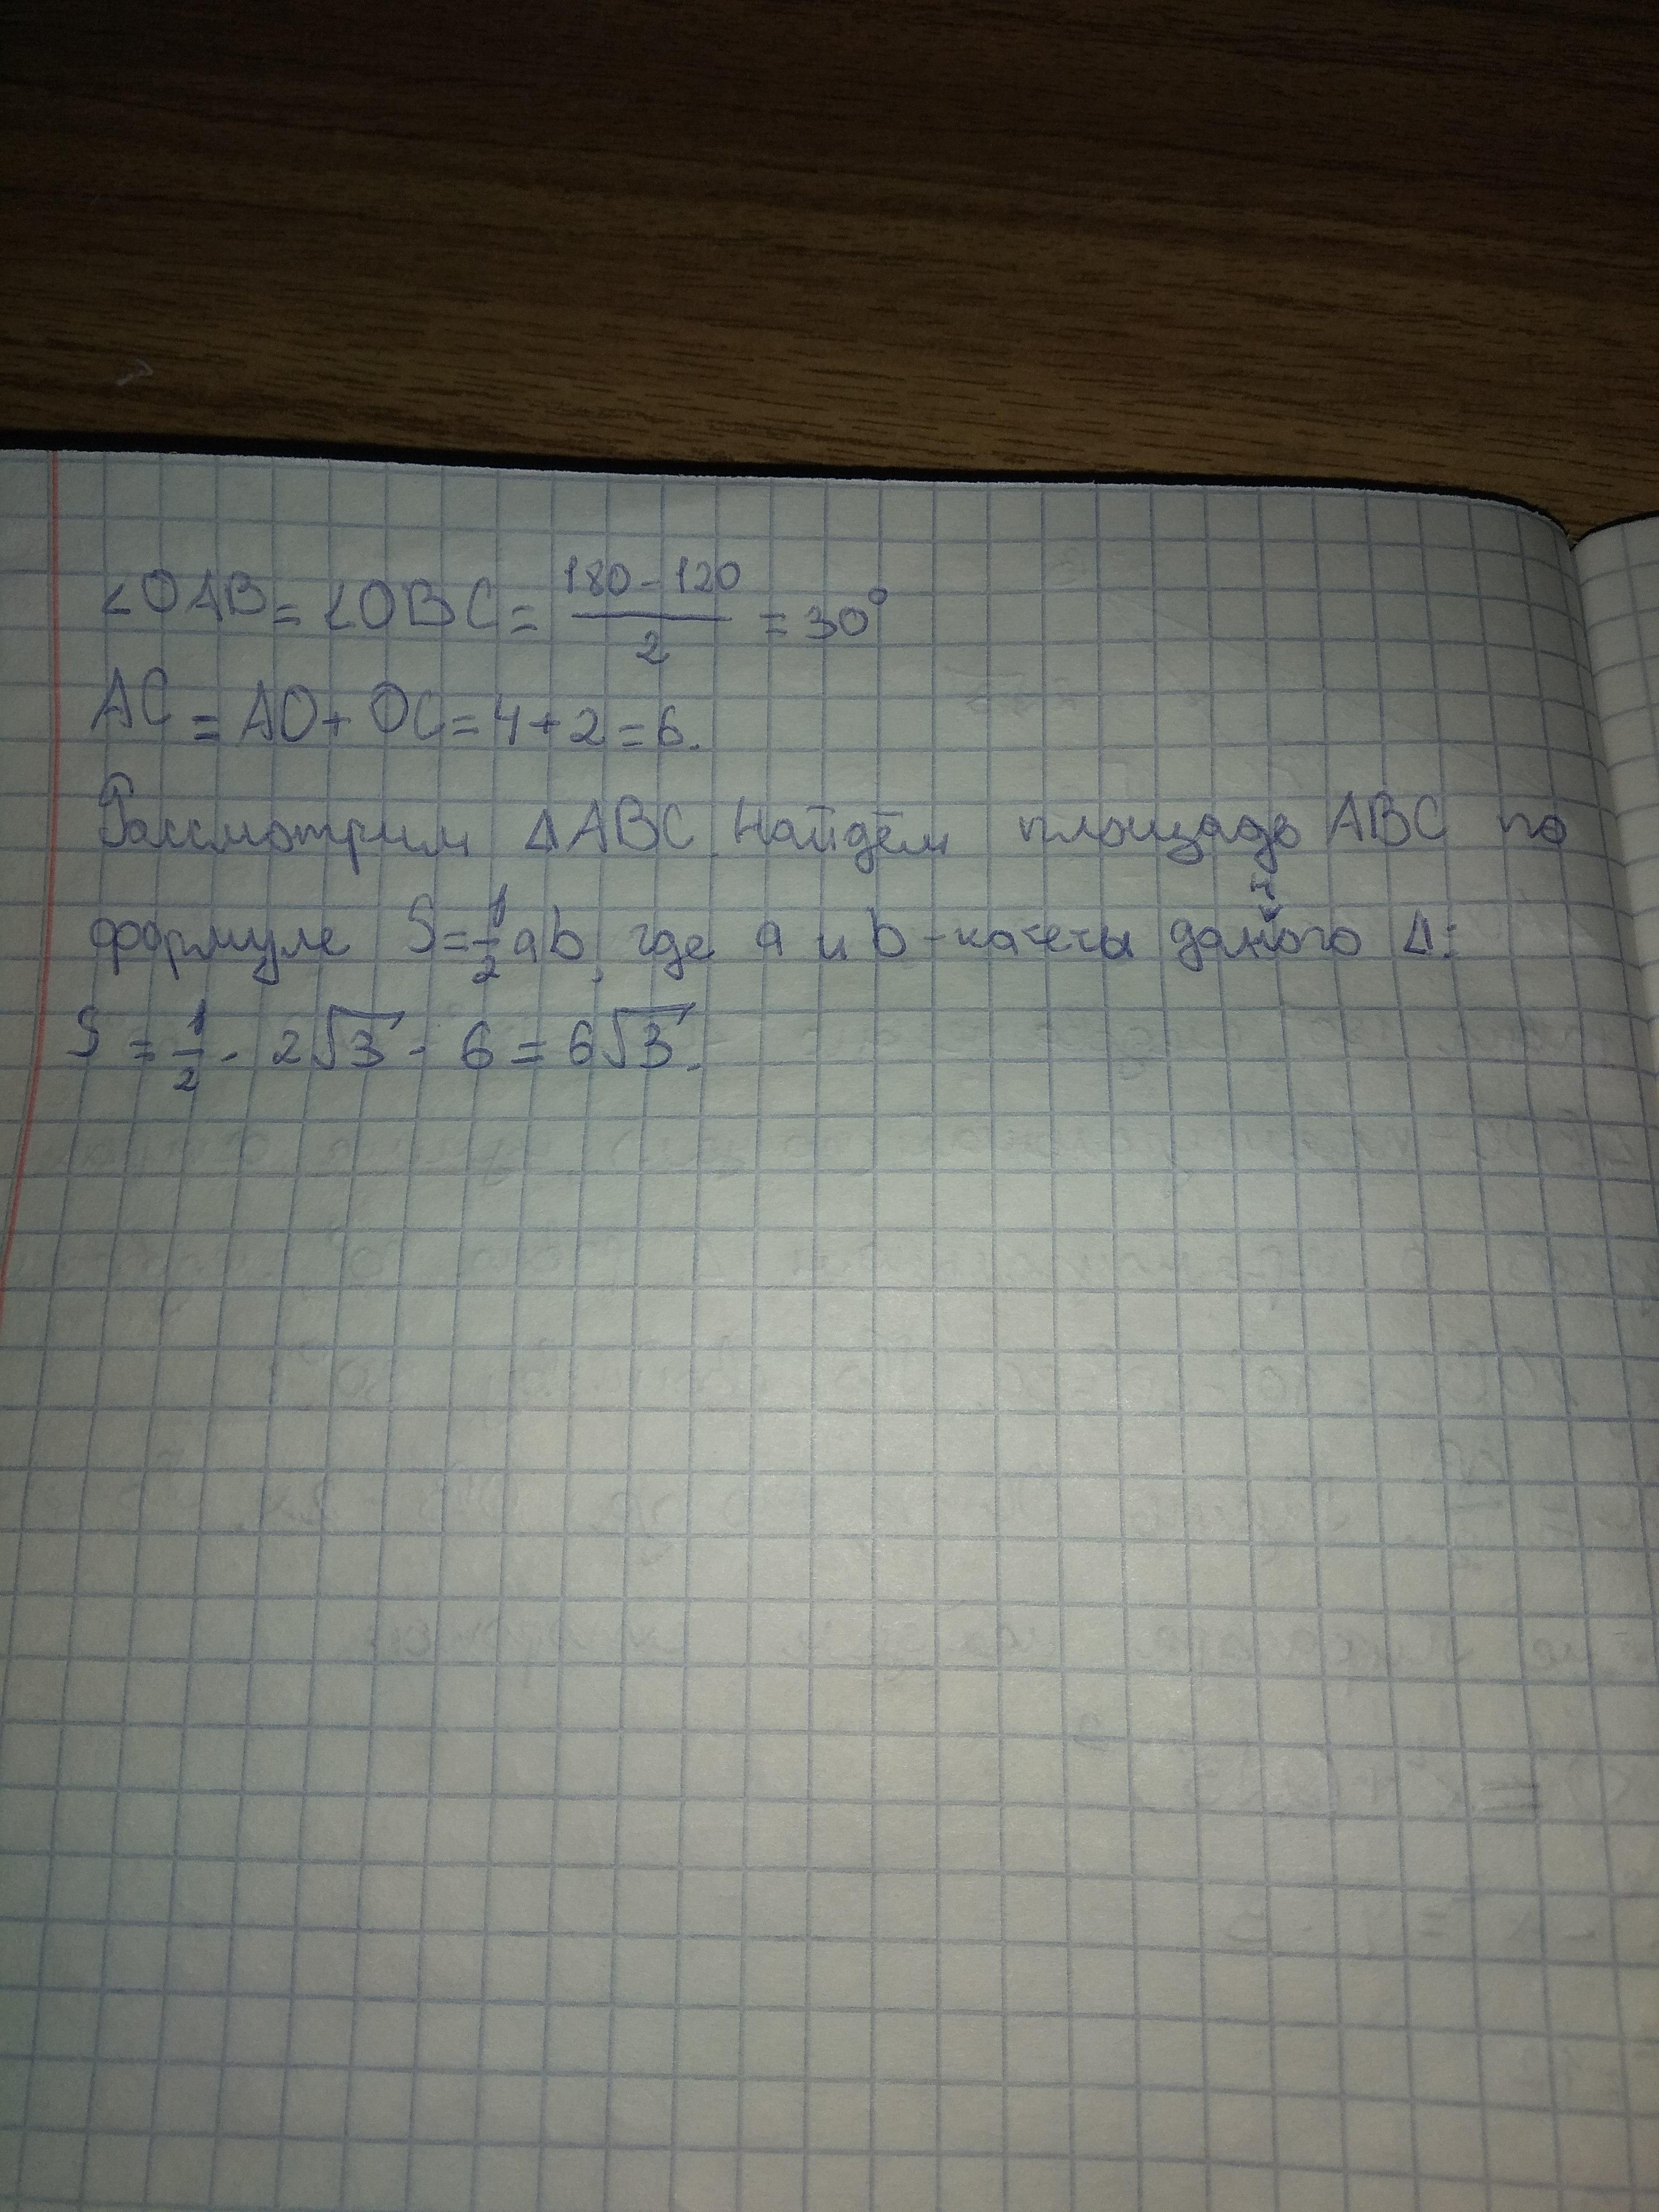 ∠OAB = ∠OBC = (180 - 120)/2 = 30°
AC = AO + OC = 4 + 2 = 6.
Рассмотрим ΔABC. Найдём площадь ABC по
формуле S = 1/2 ab, где a и b - катеты даного Δ:
S = 1/2 · 2√3 · 6 = 6√3.